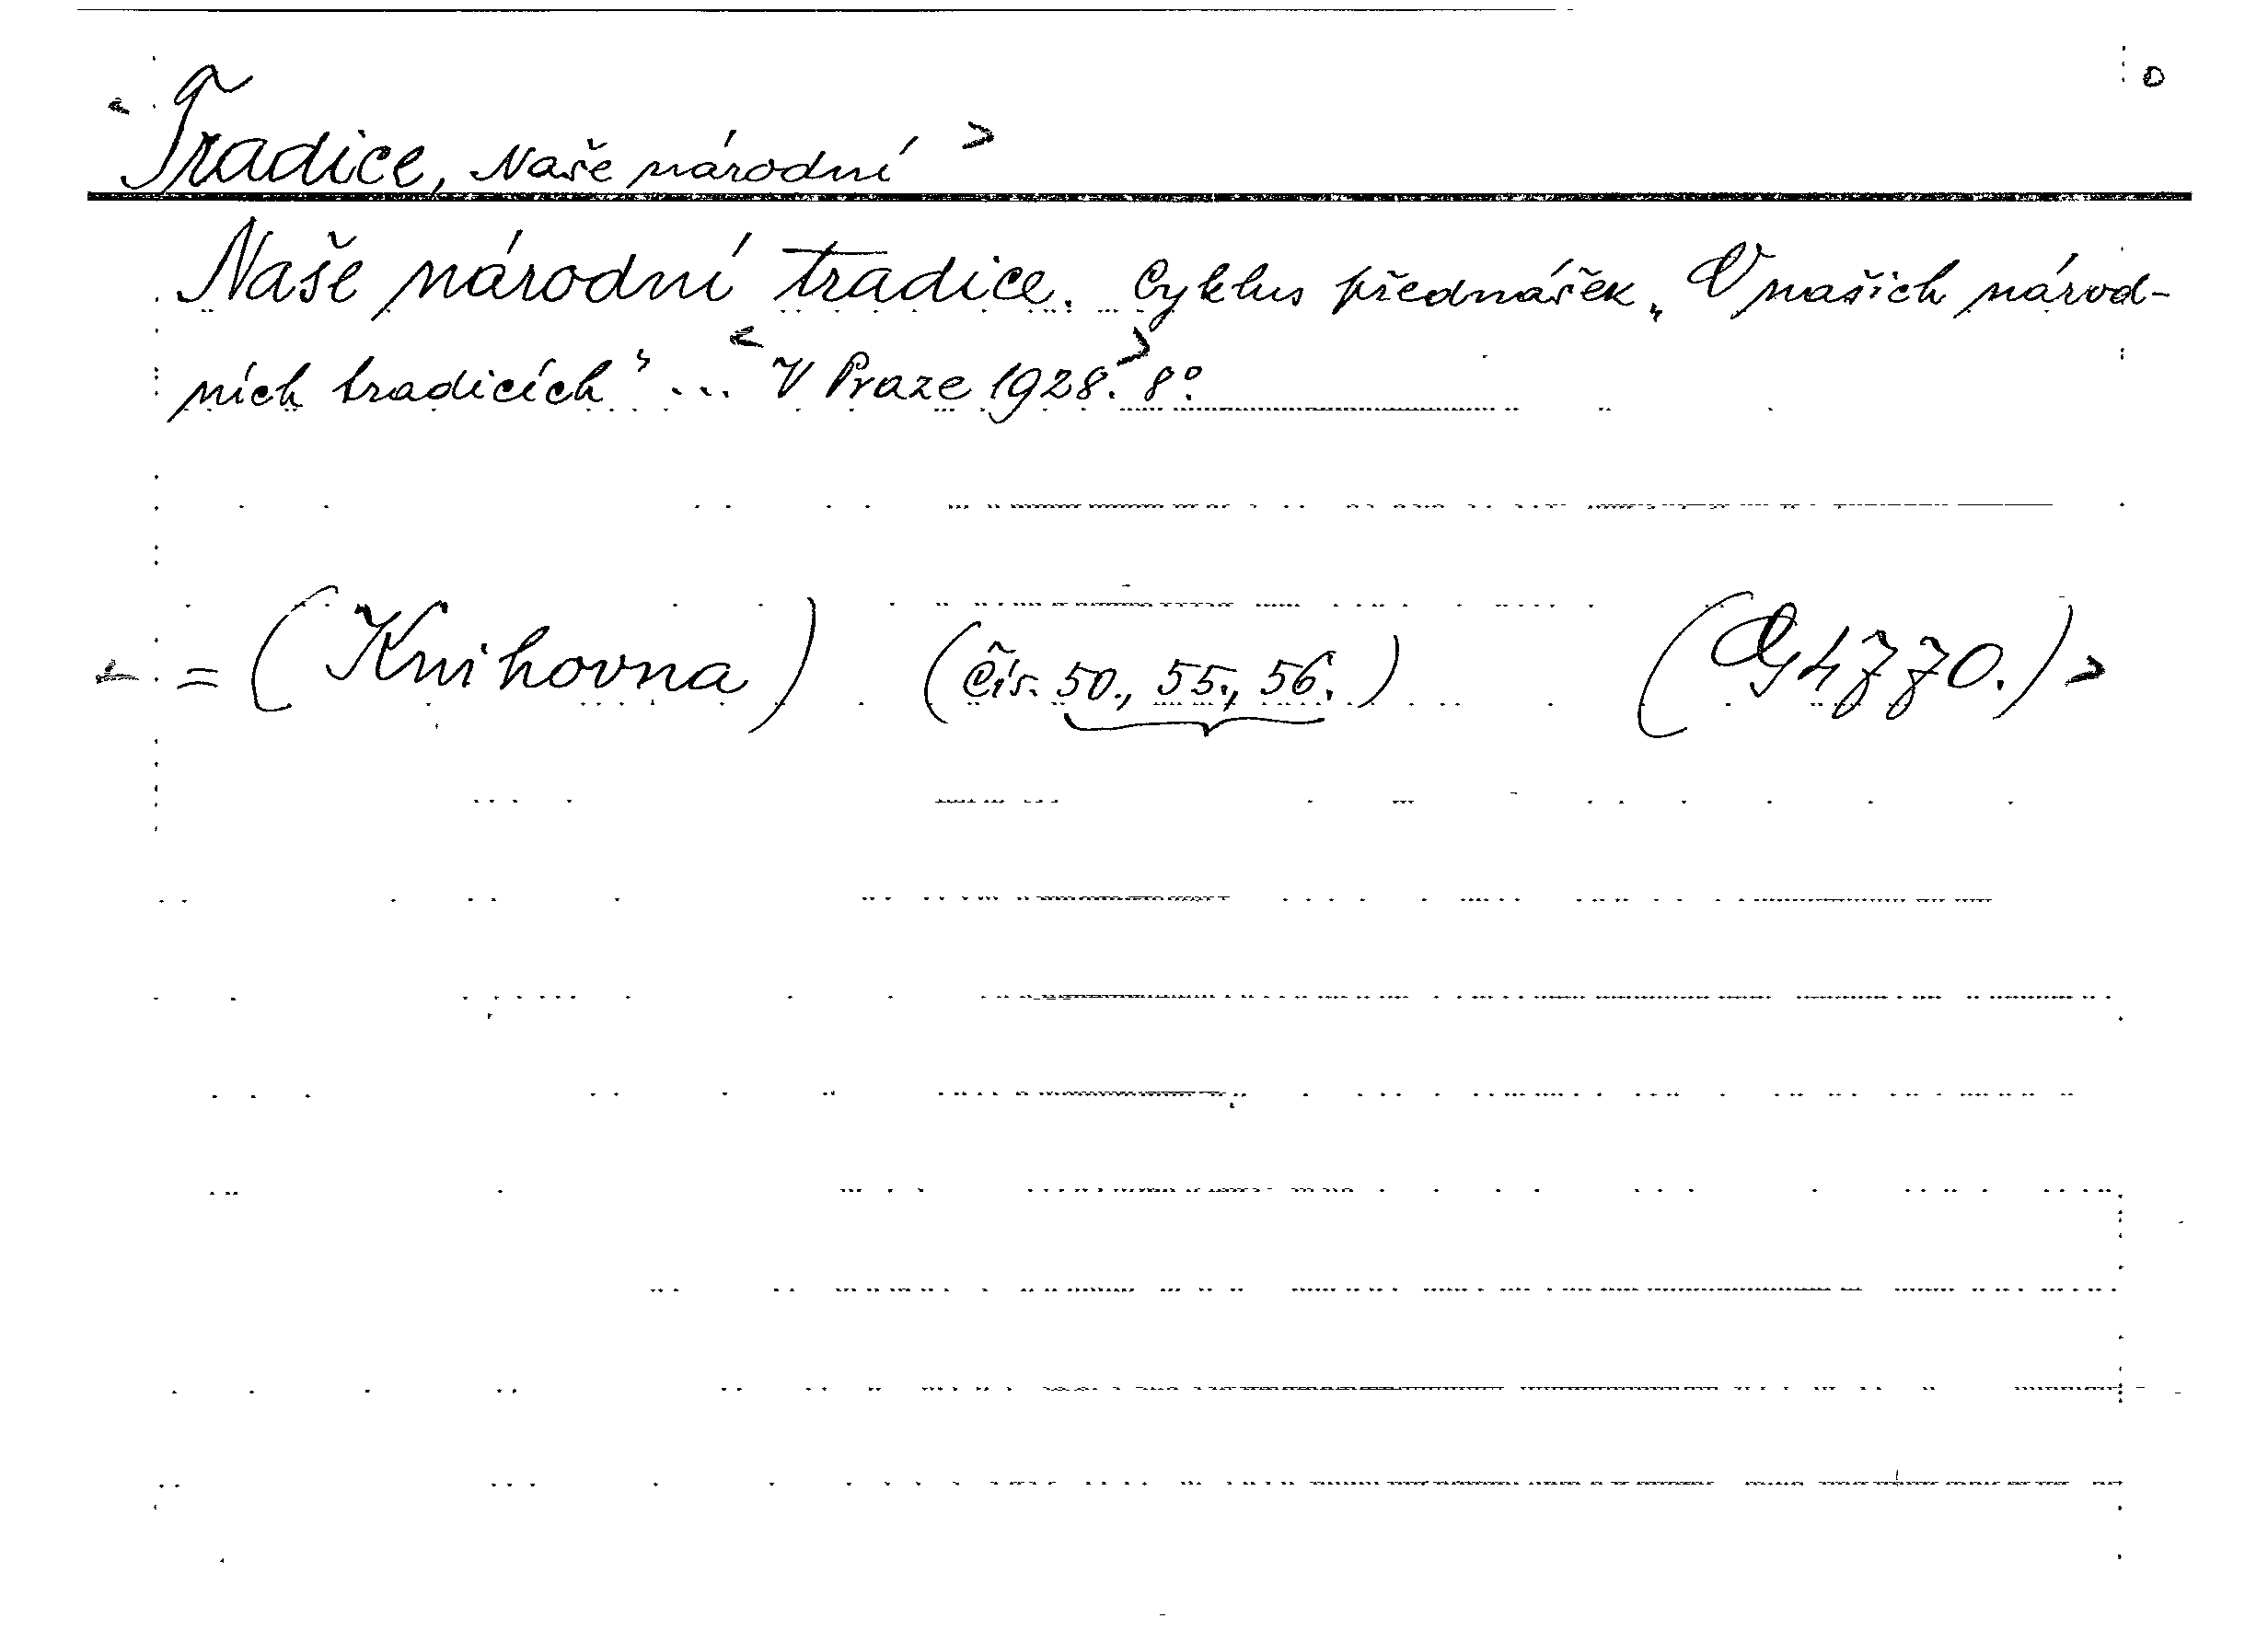 o
< Tradice, Naše národní >
Naše národní tradice. Cyklus přednášek „O našich národ-
ních tradicích“ ... < V Praze 1928. > 8°.
< = (Knihovna) (čís. 50., 55., 56.) (Og 4770.) >